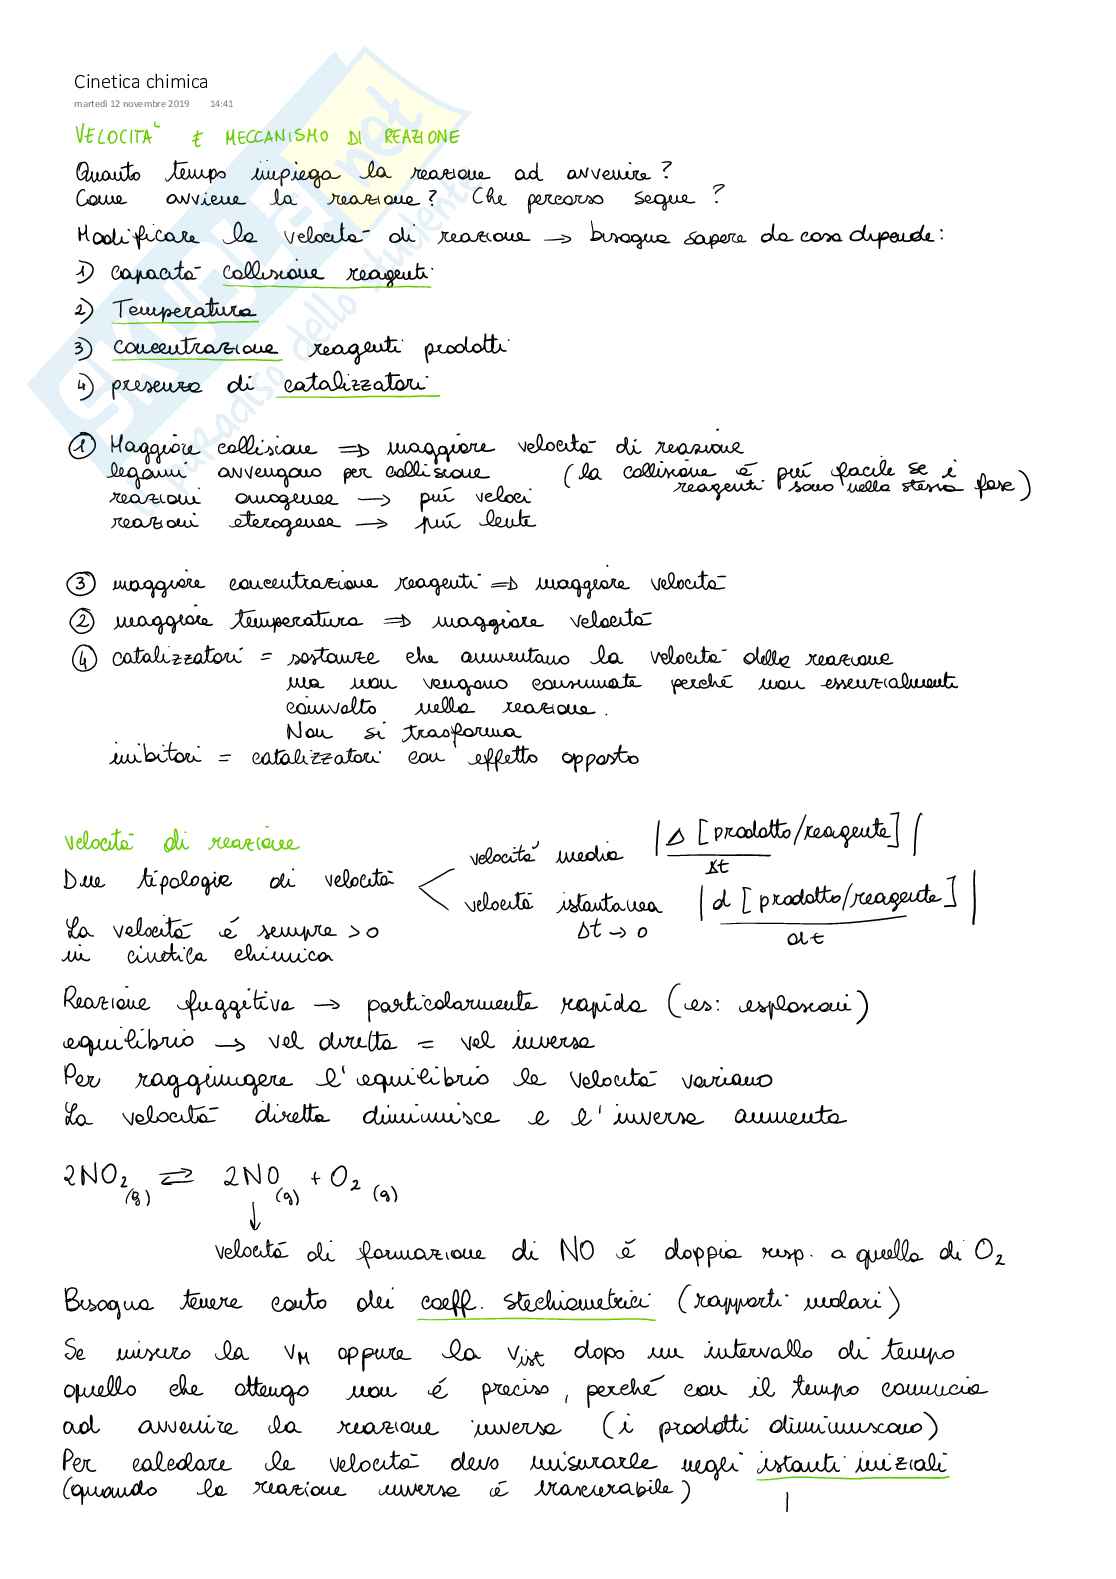 Cinetica chimica
martedì 12 novembre 2019 14:41
VELOCITÀ E MECCANISMO DI REAZIONE
Quanto tempo impiega la reazione ad avvenire?
Come avviene la reazione? Che percorso segue?
Modificare la velocità di reazione → bisogna sapere da cosa dipende:
1) capacità collisione reagenti
2) Temperatura
3) concentrazione reagenti prodotti
4) presenza di catalizzatori
① Maggiore collisione ⇒ maggiore velocità di reazione
legami avvengono per collisione (la collisione è più facile se i
reagenti sono nella stessa fase)
reazioni omogenee → più veloci
reazioni eterogenee → più lente
③ maggiore concentrazione reagenti ⇒ maggiore velocità
② maggiore temperatura ⇒ maggiore velocità
④ catalizzatori = sostanze che aumentano la velocità della reazione
ma non vengono consumate perché non essenzialmente
coinvolto nella reazione.
Non si trasforma
inibitori = catalizzatori con effetto opposto
velocità di reazione
Due tipologie di velocità
velocità media |Δ [prodotto/reagente]|
Δt
velocità istantanea |d [prodotto/reagente]|
Δt → 0 dt
La velocità è sempre >0
in cinetica chimica
Reazione fuggitiva → particolarmente rapida (es: esplosioni)
equilibrio → vel diretta = vel inversa
Per raggiungere l'equilibrio le velocità variano
La velocità diretta diminuisce e l'inversa aumenta
2NO₂ (g) ⇄ 2NO (g) + O₂ (g)
↓
velocità di formazione di NO è doppia risp. a quella di O₂
Bisogna tenere conto dei coeff. stechiometrici (rapporti molari)
Se misuro la vM oppure la vist dopo un intervallo di tempo
quello che ottengo non è preciso, perché con il tempo comincia
ad avvenire la reazione inversa (i prodotti diminuiscono)
Per calcolare le velocità devo misurarle negli istanti iniziali
(quando la reazione inversa è trascurabile)
SKUOLA.net
il paradiso dello studente